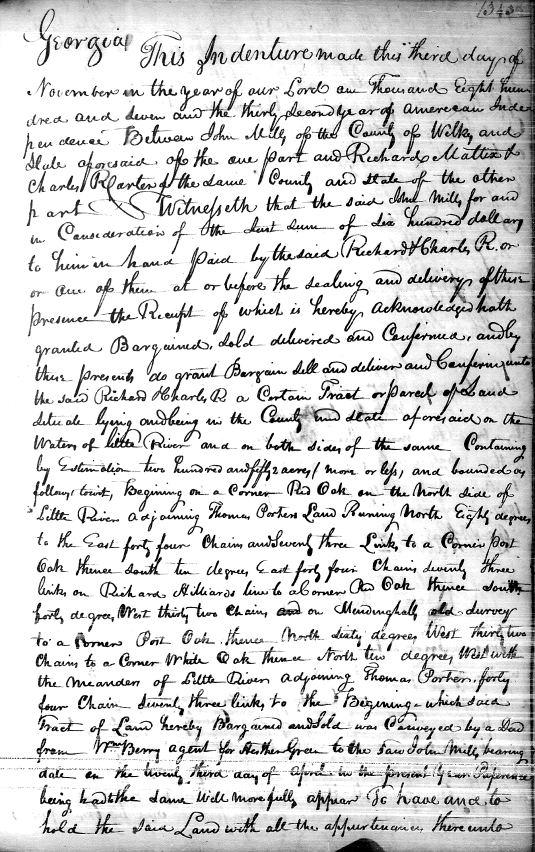 343
Georgia This Indenture made this third day of
November in the year of our Lord one Thousand Eight hun
dred and seven and the thirty second year of american Inde
pendence Between John Mills of the County of Wilks and
State aforesaid of the one part and Richard Mattox &
Charles R Carter of the same County and state of the other
part Witnesseth that the said John Mills for and
in Consideration of the Just sum of Six hundred dollars
to him in hand paid by the said Richard & Charles R. or
or one of them at or before the sealing and delivery of these
presence the Receipt of which is hereby acknowledged hath
granted Bargained, sold delivered and Confirmed, and by
these presents do grant Bargain sell and deliver and Confirm unto
the said Richard & Charles R a Certain Tract or parcel of Land
setuate lying and being in the County and state aforesaid on the
Waters of little River and on both sides of the same Containing
by Estimation two hundred and fifty 2 acres / more or less, and bounded as
follows towit, Begining on a Corner Red Oak on the North side of
Little River adjoining Thomas Porters Land Runing North Eighty degrees
to the East forty four Chains and Seventy three Links to a Corner post
Oak thence south ten degrees East forty four Chains seventy three
links on Richard Hilliards line to a Corner Red Oak thence south
forty degrees West thirty two Chains and on Mendinghalls old survey
to a Corner Post Oak thence North sixty degrees West thirty two
Chains to a Corner White Oak thence North ten degrees West with
the meanders of Little River adjoining Thomas Porters forty
four Chain Seventy three links to the Begining which said
Tract of Land hereby Bargained and Sold was Conveyed by a Deed
from Wm Berry agent for Hesther Green to the Said John Mills bearing
date on the twenty third day of April in the present Year Reference
being had to the same Will more fully appear To have and to
hold the said Land with all the appurtenances thereunto